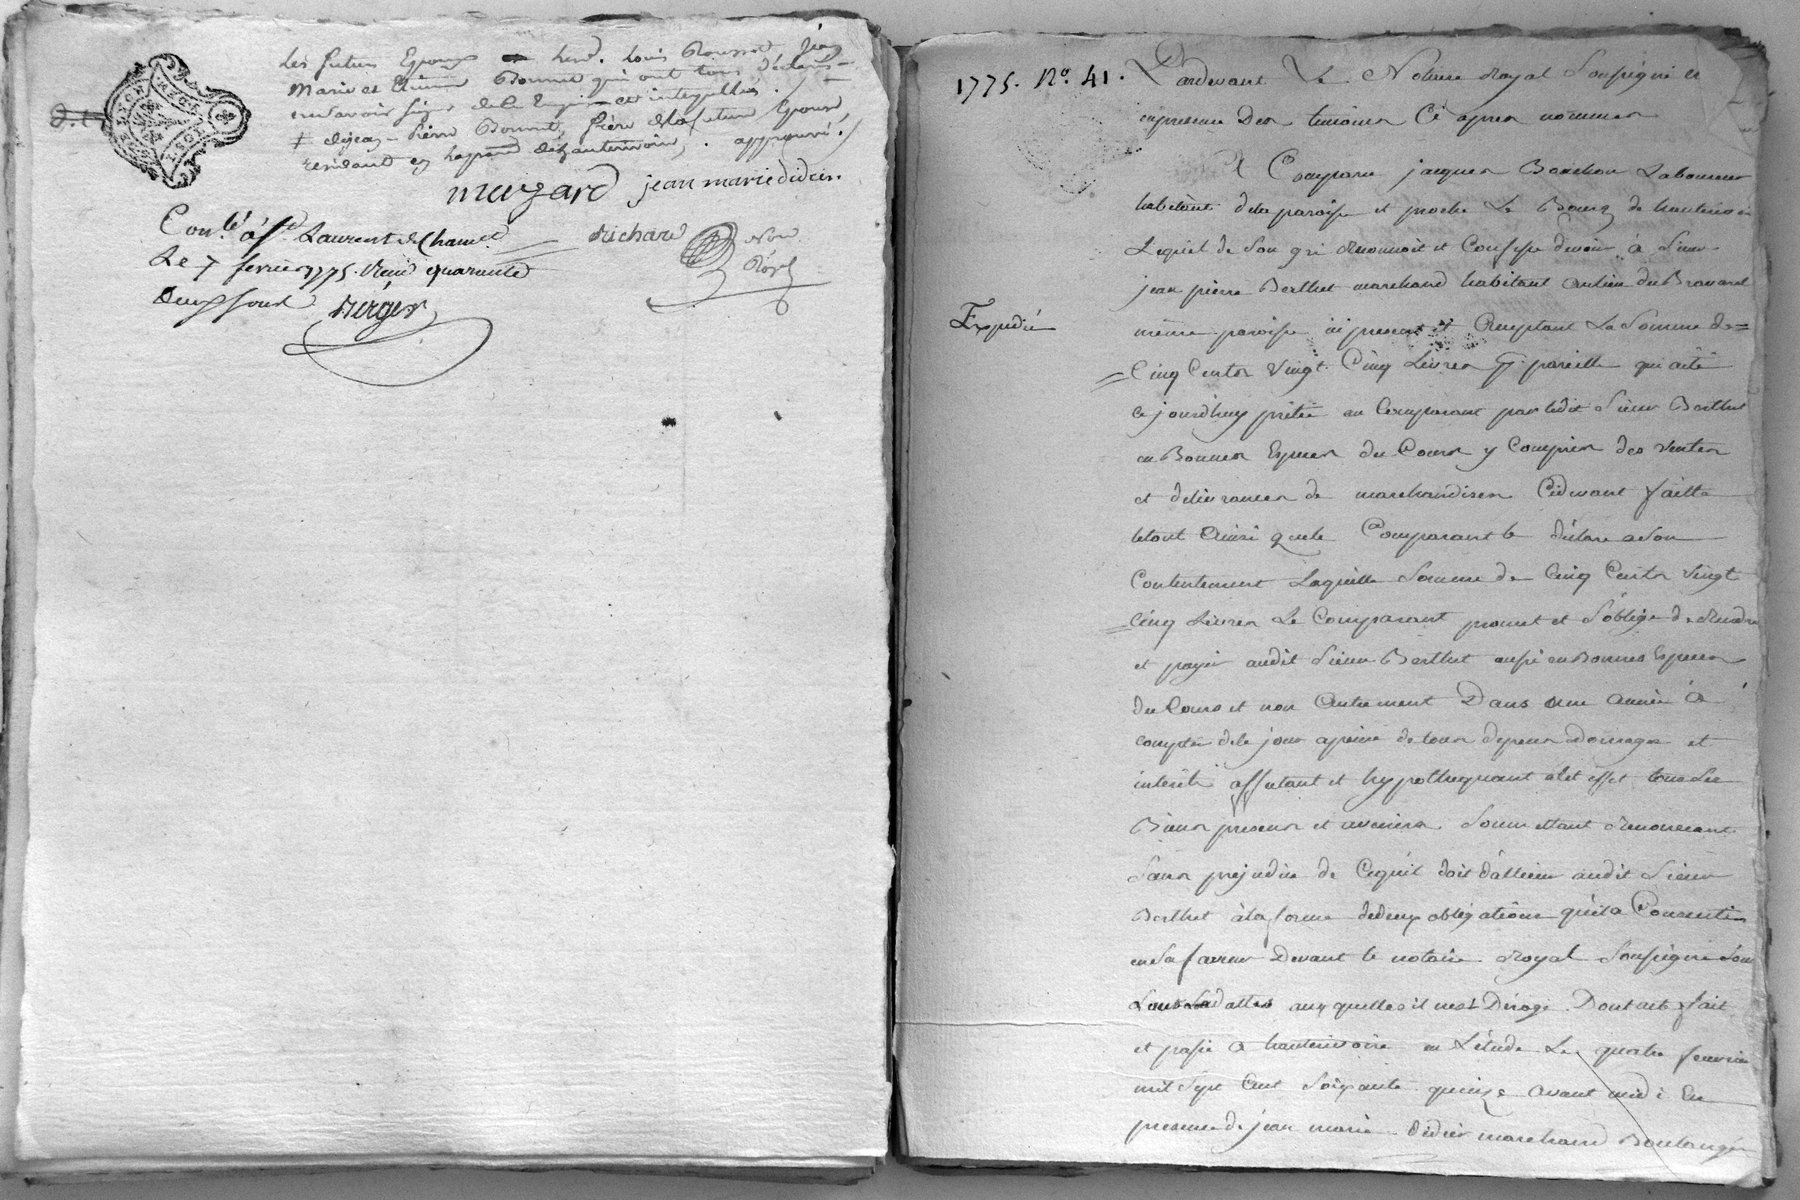 les futurs Epoux Louis Rousset, jean
Marie et Etienne Bonnet qui ont tous déclarés
ne savoir signer de ce Enquis et interpellés
‡ dejean-Pierre Bonnet, frère dela future Epouse,
résidant en approuvé.
muzard jean marie didier.
Richard Not. Royal
Con.lé à St. Laurent de Chamt.
Le 7 fevrier 1775. Reçu quarante
deux sous Berger
1775. No. 41.
Pardevant Le Notaire Royal Soussigné et
en presence Des temoins Ci apres nommes
A Comparu jacques Bouchon Laboureur
habitant dela paroisse et proche Le Bourg de hauterivoire
Lequel de son gré Reconnoit et Confesse devoir à Sieur
jean pierre Berthet marchand habitant aulieu du Bramaret
Expedié
même paroisse ici present et Acceptant La Somme de
Cinq Cents Vingt Cinq Livres pareille qui aété
ce jourdhuy prétée au Comparant par ledit Sieur Berthet
en Bonnes Especes du Cours y Compris des Ventes
et delivrances de marchandises Cidevant faitte
letout Ainsi quele Comparant le déclare ason
Contentement Laquelle Somme de Cinq Cents Vingt
Cinq Livres Le Comparant promet et S'oblige de Rendre
et payer audit Sieur Berthet aussi en Bonnes Especes
du Cours et non Autrement Dans une Année à
compter dece jour apeine de tous depens domages et
interêts affectant et hypothequant acet effet tous ses
Biens presens et avenirs Soumettant Renonceant
Sans prejudice de Cequil doit dailleurs audit Sieur
Berthet àla forme dedeux obligations qu'il a Consenties
en Sa faveur Devant le notaire Royal Soussigné Sous
Leurs dattes auxquelles il n'est Dérogé. Dont acte fait
et passé a hauterivoire en L'étude Le quatre fevrier
mil Sept Cent Soixante quinze avant midi En
presence de jean marie Didier marchand Boulanger